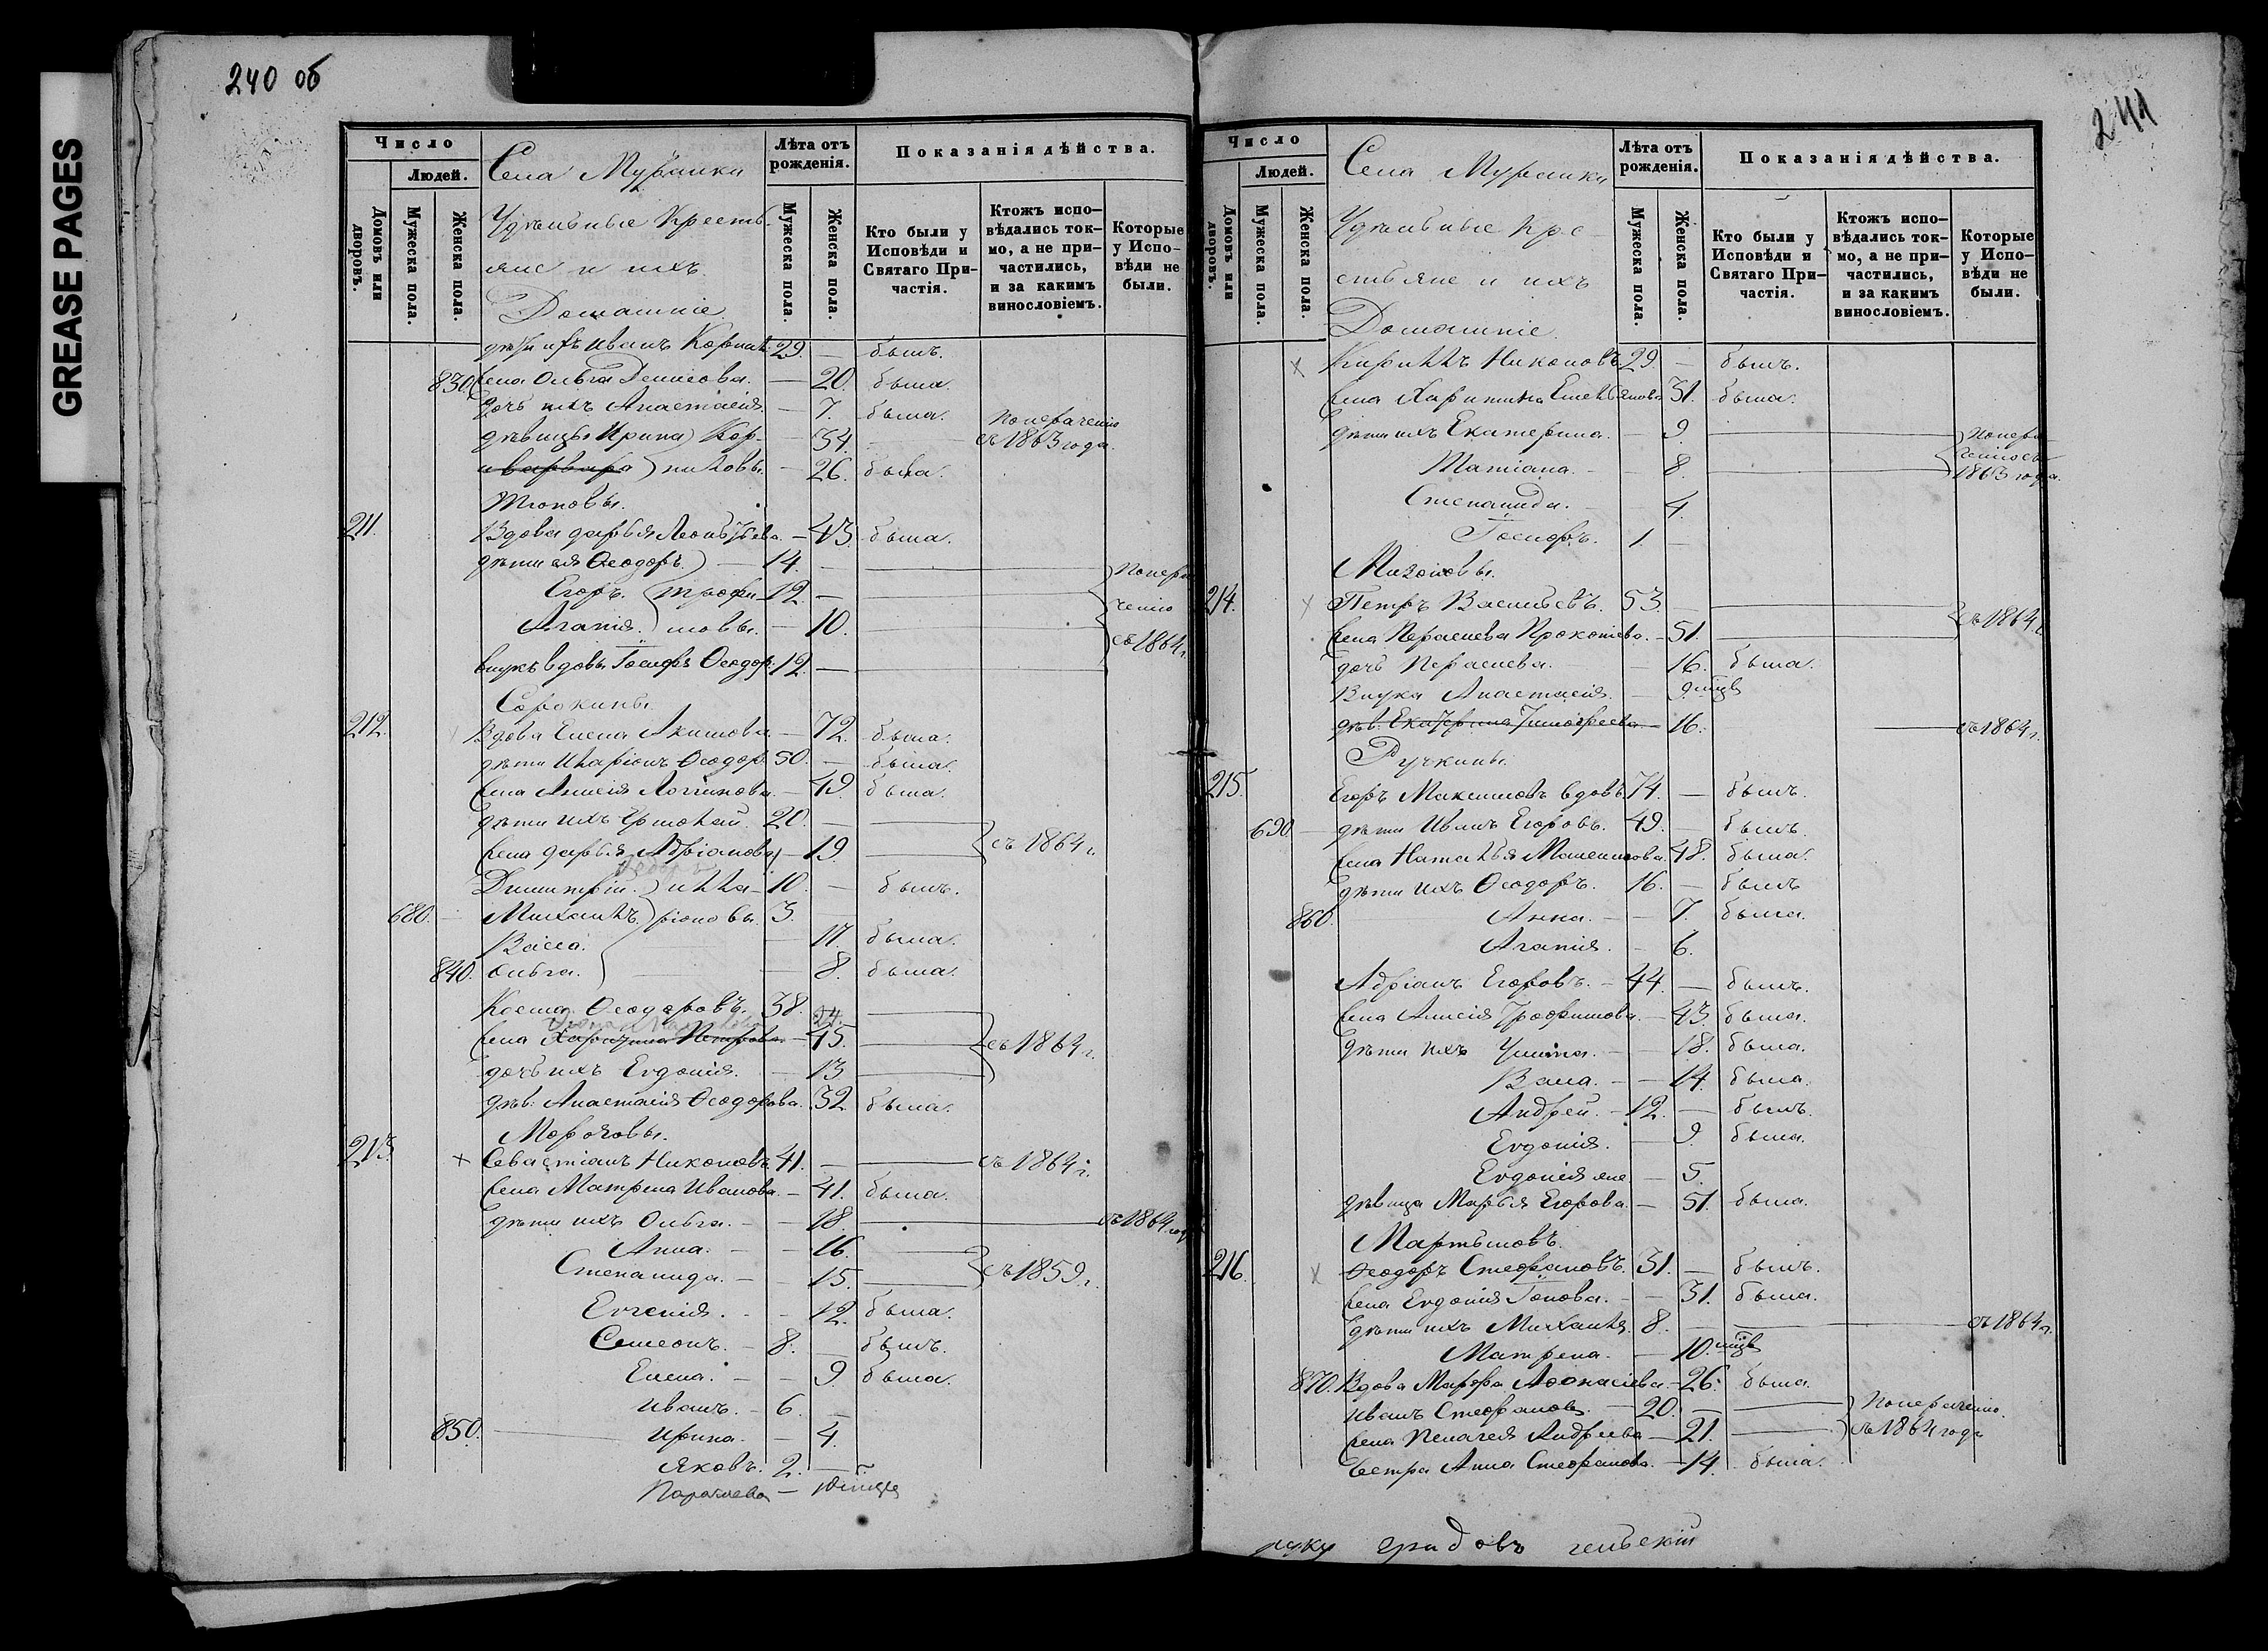 GREASE PAGES
240 об
Число
Людей.
Домовъ или дворовъ.
Мужеска пола.
Женска пола.
Села Муранки
Удѣльные Крестьяне и ихъ
Домашніе
Лѣта отъ рожденія.
Мужеска пола.
Женска пола.
Показанія дѣйства.
Кто были у Исповѣди и Святаго Причастія.
Ктожъ исповѣдались токмо, а не причастились, и за какимъ винословіемъ.
Которые у Исповѣди не были.
Иванъ 29. — былъ.
830. жена Ольга Денисова. — 20. была.
дочь ихъ Анастасія — 7. была.
дѣвицы Ирина — 34. — по нераченію съ 1863 года.
и Варвара — 26. была.
211. Вдова Дарья Леонтьева. — 43. была.
дѣти ея Ѳеодоръ 14. —
Егоръ. Трофи- 12. —
Агапія. мовы. — 10.
по нераченію съ 1864 г.
внукъ вдовы Іосифъ Ѳеодор. 12. —
Сорокины
212. Вдова Елена Акимова — 72. была.
дѣти Иларіонъ Ѳеодор. 50. — была.
жена Анисія Логинова. — 49 была.
дѣти ихъ Ермолай. 20. —
жена Дарья Адріанова — 19. съ 1864 г.
Димитрій. Илла- 10. — былъ.
680. Михаилъ. ріоновы. 3.
Васса. — 17 была.
840. Ольга. — 8. была.
Косма Ѳеодоровъ. 38.
жена Харитина Петрова — 45. съ 1864 г.
дочь ихъ Евдокія. — 13
дѣв. Анастасія Ѳеодорова. 32 была.
Морозовы.
213. × Севастіанъ Никоновъ 41. — съ 1864 г.
жена Матрена Иванова. — 41. была.
дѣти ихъ Ольга. — 18. съ 1864 год
Анна. — 16.
Степанида. — 15. съ 1859 г.
Евгенія. — 12. была.
Симеонъ. — 8. былъ.
Елена. — 9. была.
Иванъ. — 6.
850. Ирина. — 4.
Яковъ. 2. —
Параскева —
241
Число
Людей.
Домовъ или дворовъ.
Мужеска пола.
Женска пола.
Села Муранки
Удѣльные Крестьяне и ихъ
Домашніе
Лѣта отъ рожденія.
Мужеска пола.
Женска пола.
Показанія дѣйства.
Кто были у Исповѣди и Святаго Причастія.
Ктожъ исповѣдались токмо, а не причастились, и за какимъ винословіемъ.
Которые у Исповѣди не были.
× Кириллъ Никоновъ. 29. — былъ.
жена Харитина Емельянова 31. была.
дѣти ихъ Екатерина. — 9.
Татіана. — 8.
по нераченію съ 1863 года.
Степанида. — 4.
Іосифъ. 1. —
214. Петръ Васильевъ. 53. —
жена Параскева Прокопіева. — 51. съ 1864 г.
дочь Параскева. — 16. была.
Внука Анастасія. — 9 мцъ
дѣв. Екатерина Тимофеева — 16. съ 1864 г.
Ручкины.
215. Егоръ Максимовъ вдовъ 74. — былъ.
690 — дѣти Иванъ Егоровъ. 49. — былъ.
жена Наталья 48. была.
дѣти ихъ Ѳеодоръ. 16. — былъ
860. Анна. — 7. была.
Агапія. — 6.
Адріанъ Егоровъ. — 44. — былъ.
жена Анисія Трофимова. — 43. была.
дѣти ихъ — 18. была.
— 14. была.
Андрей. — 12. — былъ.
Евдокія. — 9. была.
Евдокія — 5.
дѣвица Марья Егорова. — 51. была.
Мартыновъ.
216. × Ѳеодоръ Стефановъ. 31. — былъ.
жена Евдокія Іонова. — 31. была.
дѣти ихъ Михаилъ. 8. съ 1864 г.
Матрена. — 10. мцъ
870. Вдова Марфа Аѳонасіева. — 26. была.
Иванъ Стефановъ. — 20. —
жена Пелагея Андреева — 21.
по нераченію съ 1864 года
Сестра Анна Стефанова. — 14. была.
руку